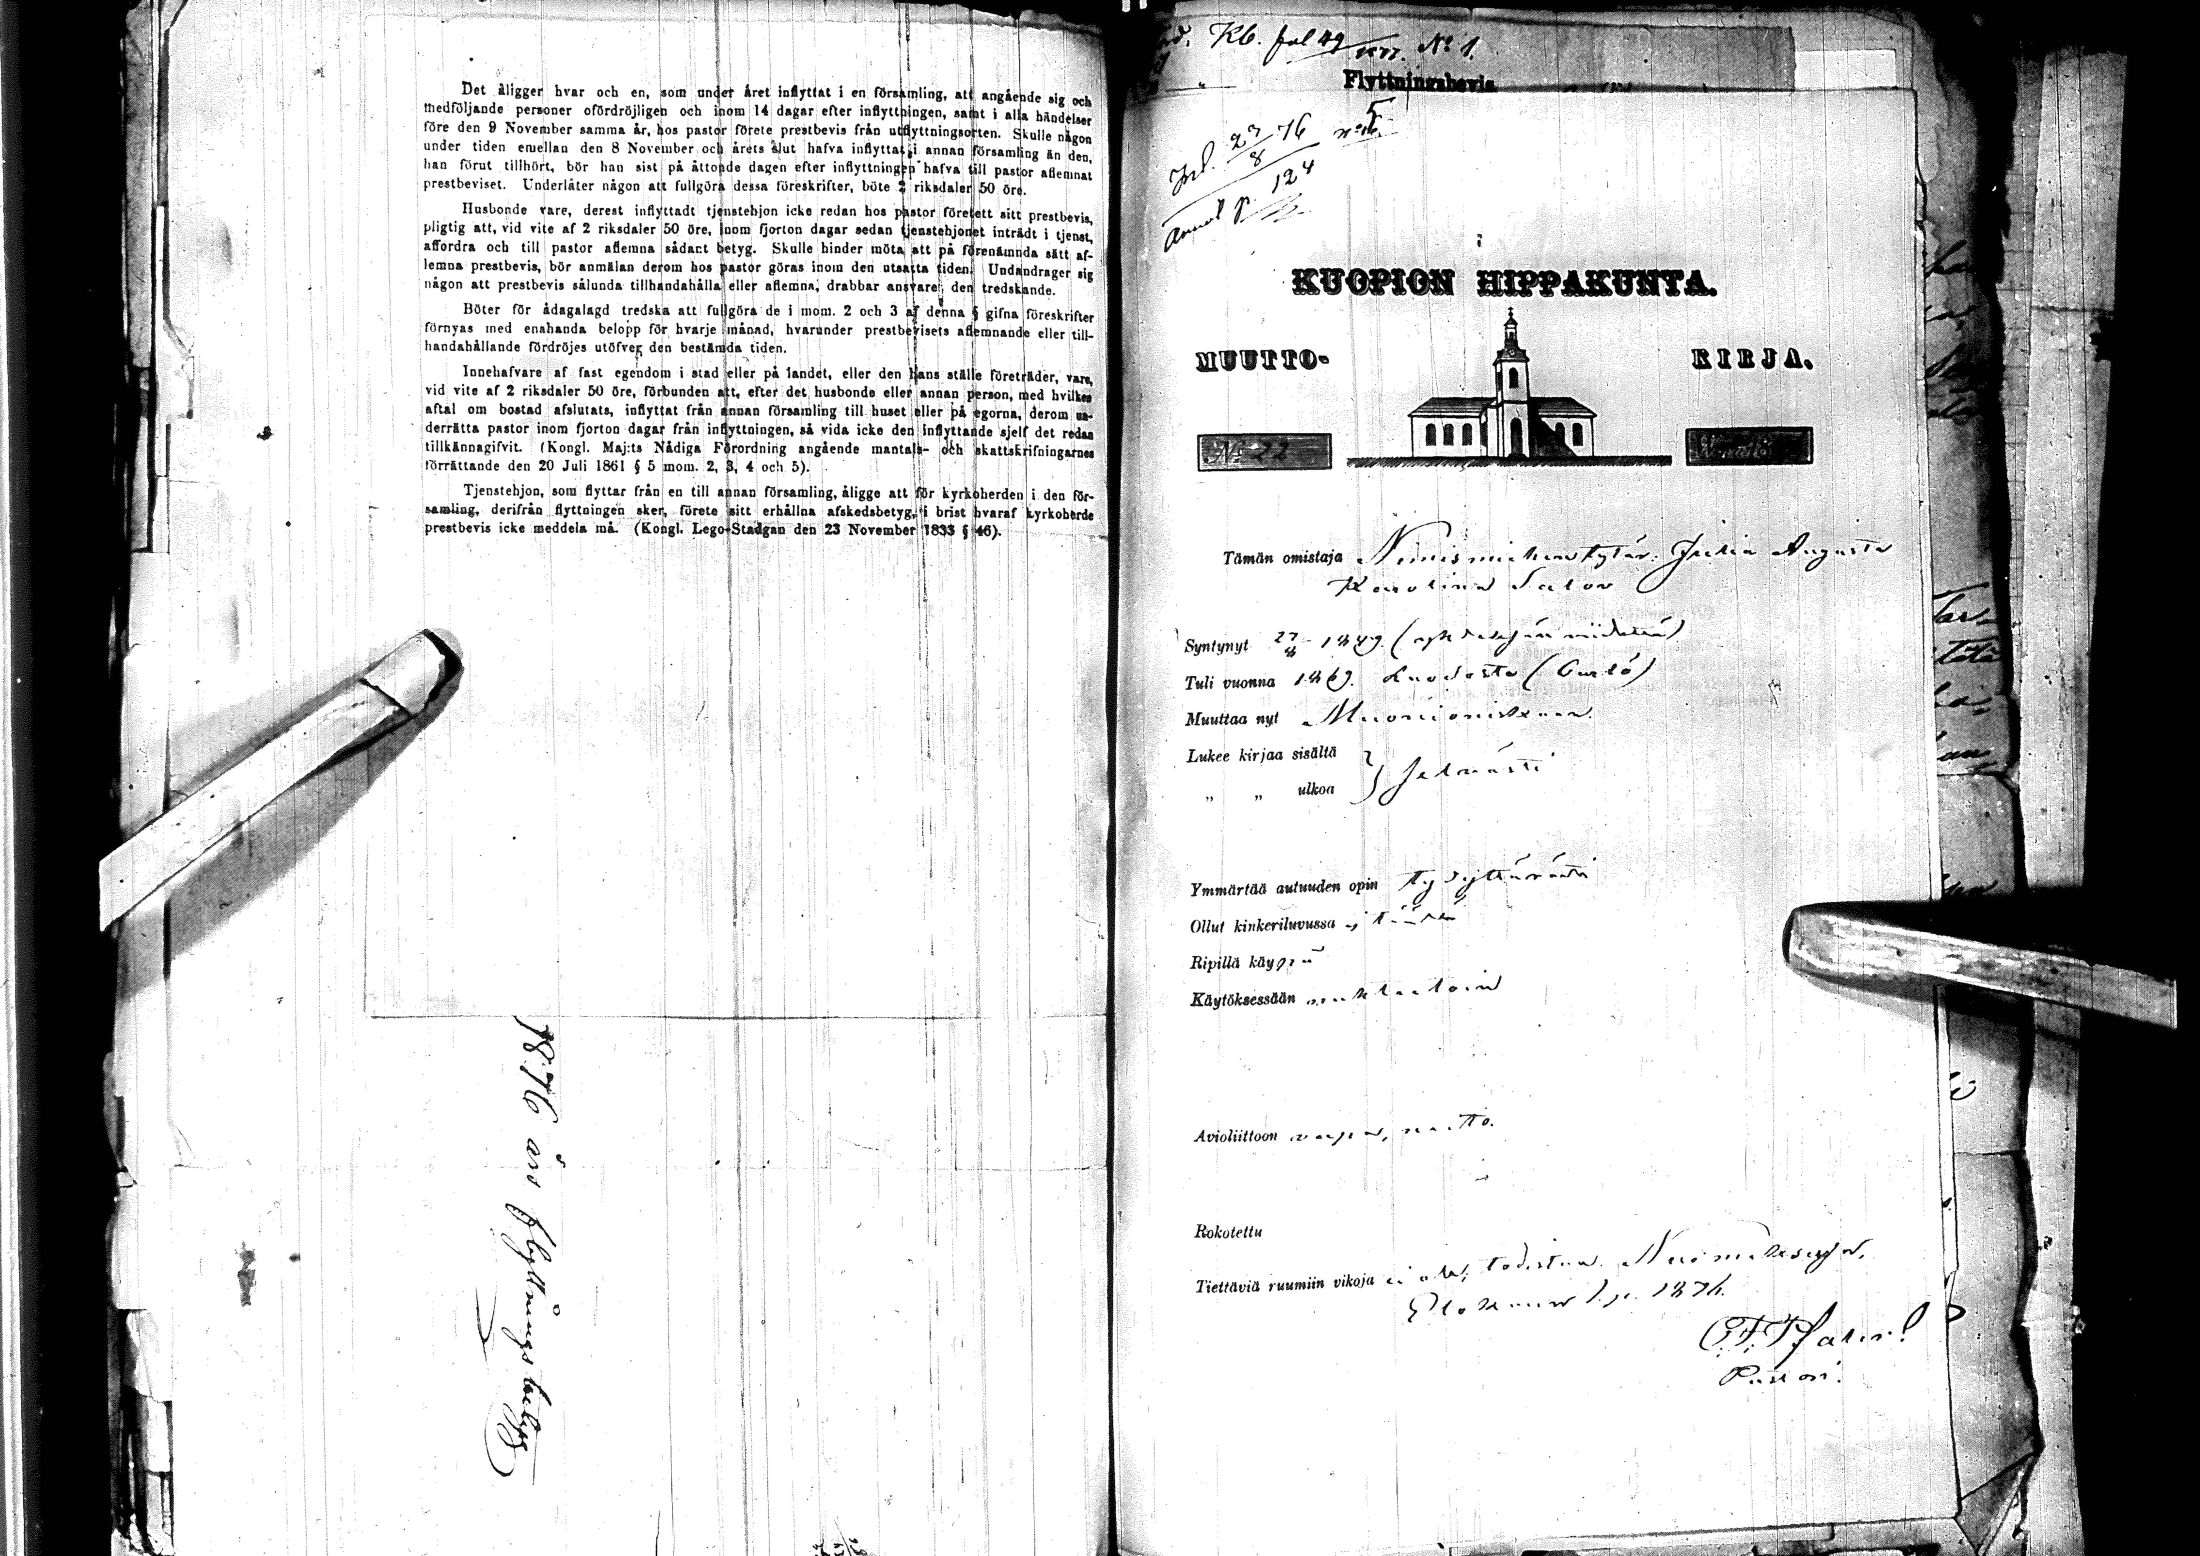 Det åligger hvar och en, som under året inflyttat i en församling, att angående sig och
medföljande personer ofördröjligen och inom 14 dagar efter inflyttningen, samt i alla händelser
före den 9 November samma år, hos pastor förete prestbevis från utflyttningsorten. Skulle någon
under tiden emellan den 8 November och årets slut hafva inflyttat i annan församling än den,
han förut tillhört, bör han sist på åttonde dagen efter inflyttningen hafva till pastor aflemnat
prestbeviset. Underlåter någon att fullgöra dessa föreskrifter, böte 2 riksdaler 50 öre.
Husbonde vare, derest inflyttadt tjenstehjon icke redan hos pastor företett sitt prestbevis,
pligtig att, vid vite af 2 riksdaler 50 öre, inom fjorton dagar sedan tjenstehjonet inträdt i tjenst,
affordra och till pastor aflemna sådant betyg. Skulle hinder möta att på förenämnda sätt af-
lemna prestbevis, bör anmälan derom hos pastor göras inom den utsatta tiden. Undandrager sig
någon att prestbevis sålunda tillhandahålla eller aflemna, drabbar ansvaret den tredskande.
Böter för ådagalagd tredska att fullgöra de i mom. 2 och 3 af denna § gifna föreskrifter
förnyas med enahanda belopp för hvarje månad, hvarunder prestbevisets aflemnande eller till-
handahållande fördröjes utöfver den bestämda tiden.
Innehafvare af fast egendom i stad eller på landet, eller den hans ställe företräder, vare,
vid vite af 2 riksdaler 50 öre, förbunden att, efter det husbonde eller annan person, med hvilken
aftal om bostad afslutats, inflyttat från annan församling till huset eller på egorna, derom un-
derrätta pastor inom fjorton dagar från inflyttningen, så vida icke den inflyttande sjelf det redan
tillkännagifvit. (Kongl. Maj:ts Nådiga Förordning angående mantals- och skattskrifningarnes
förrättande den 20 Juli 1861 § 5 mom. 2, 3, 4 och 5).
Tjenstehjon, som flyttar från en till annan församling, åligge att för kyrkoherden i den för-
samling, derifrån flyttningen sker, förete sitt erhållna afskedsbetyg, i brist hvaraf kyrkoherde
prestbevis icke meddela må. (Kongl. Lego-Stadgan den 23 November 1833 § 46).
1876 års flyttningsbetyg
Kb. fol 49 1877. No 1.
Flyttningsbevis
27/8 76 No 5
124
KUOPION HIPPAKUNTA.
MUUTTO- KIRJA.
No 22
Tämän omistaja Nimismiehen tytär Julia Augusta
Karolina Salov
Syntynyt 27/8 1849. (yhdeksän viidettä)
Tuli vuonna 1869. Luodosta (Carlö)
Muuttaa nyt Muonionniskaan.
Lukee kirjaa sisältä
„ „ ulkoa } selvästi
Ymmärtää autuuden opin tyydyttävästi
Ollut kinkeriluvussa
Ripillä käypiä
Käytöksessään nuhteetoin
Avioliittoon vapaa, naitto.
Rokotettu
Tiettäviä ruumiin vikoja ei ole; todistaa.
Elokuun 1 p. 1876.
Pastori.